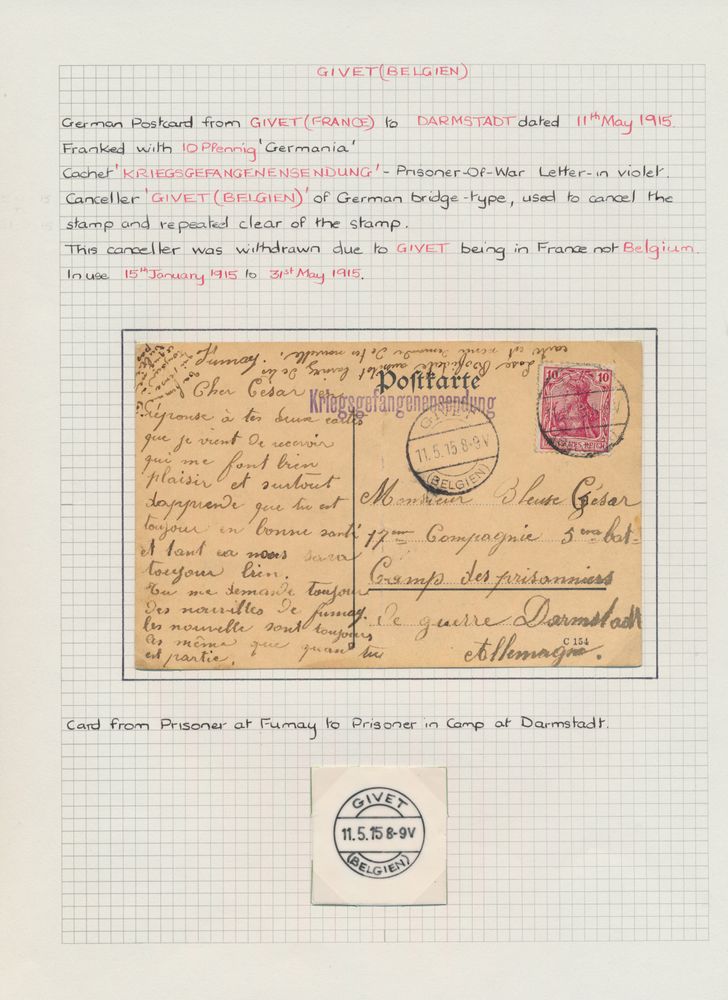 GIVET (BELGIEN)
German Postcard from GIVET (FRANCE) to DARMSTADT dated 11th May 1915.
Franked with 10 Pfennig 'Germania'
Cachet 'KRIEGSGEFANGENENSENDUNG' - Prisoner-Of-War Letter-in violet.
Canceller 'GIVET (BELGIEN)' of German bridge-type, used to cancel the
stamp and repeated clear of the stamp.
This canceller was withdrawn due to GIVET being in France not Belgium.
In use 15th January 1915 to 31st May 1915.
Postkarte
Kriegsgefangenensendung
10 10
GIVET
11.5.15 8-9V
(BELGIEN)
Cher César
Réponse à tes deux cartes
que je vient de recevoir
qui me font bien
plaisir et surtout
dapprendre que tu est
toujour en bonne santé
et tant ca nous sera
toujour bien.
Tu me demande toujour
des nouvilles de fumay.
les nouvelle sont toujours
as même que quan tu
est partie.
Monsieur Bleuse César
17me Compagnie 5me bat
Camp des prisonniers
de guerre Darmstadt
C 154
Allemagne.
Card from Prisoner at Fumay to Prisoner in Camp at Darmstadt.
GIVET
11.5.15 8-9V
(BELGIEN)